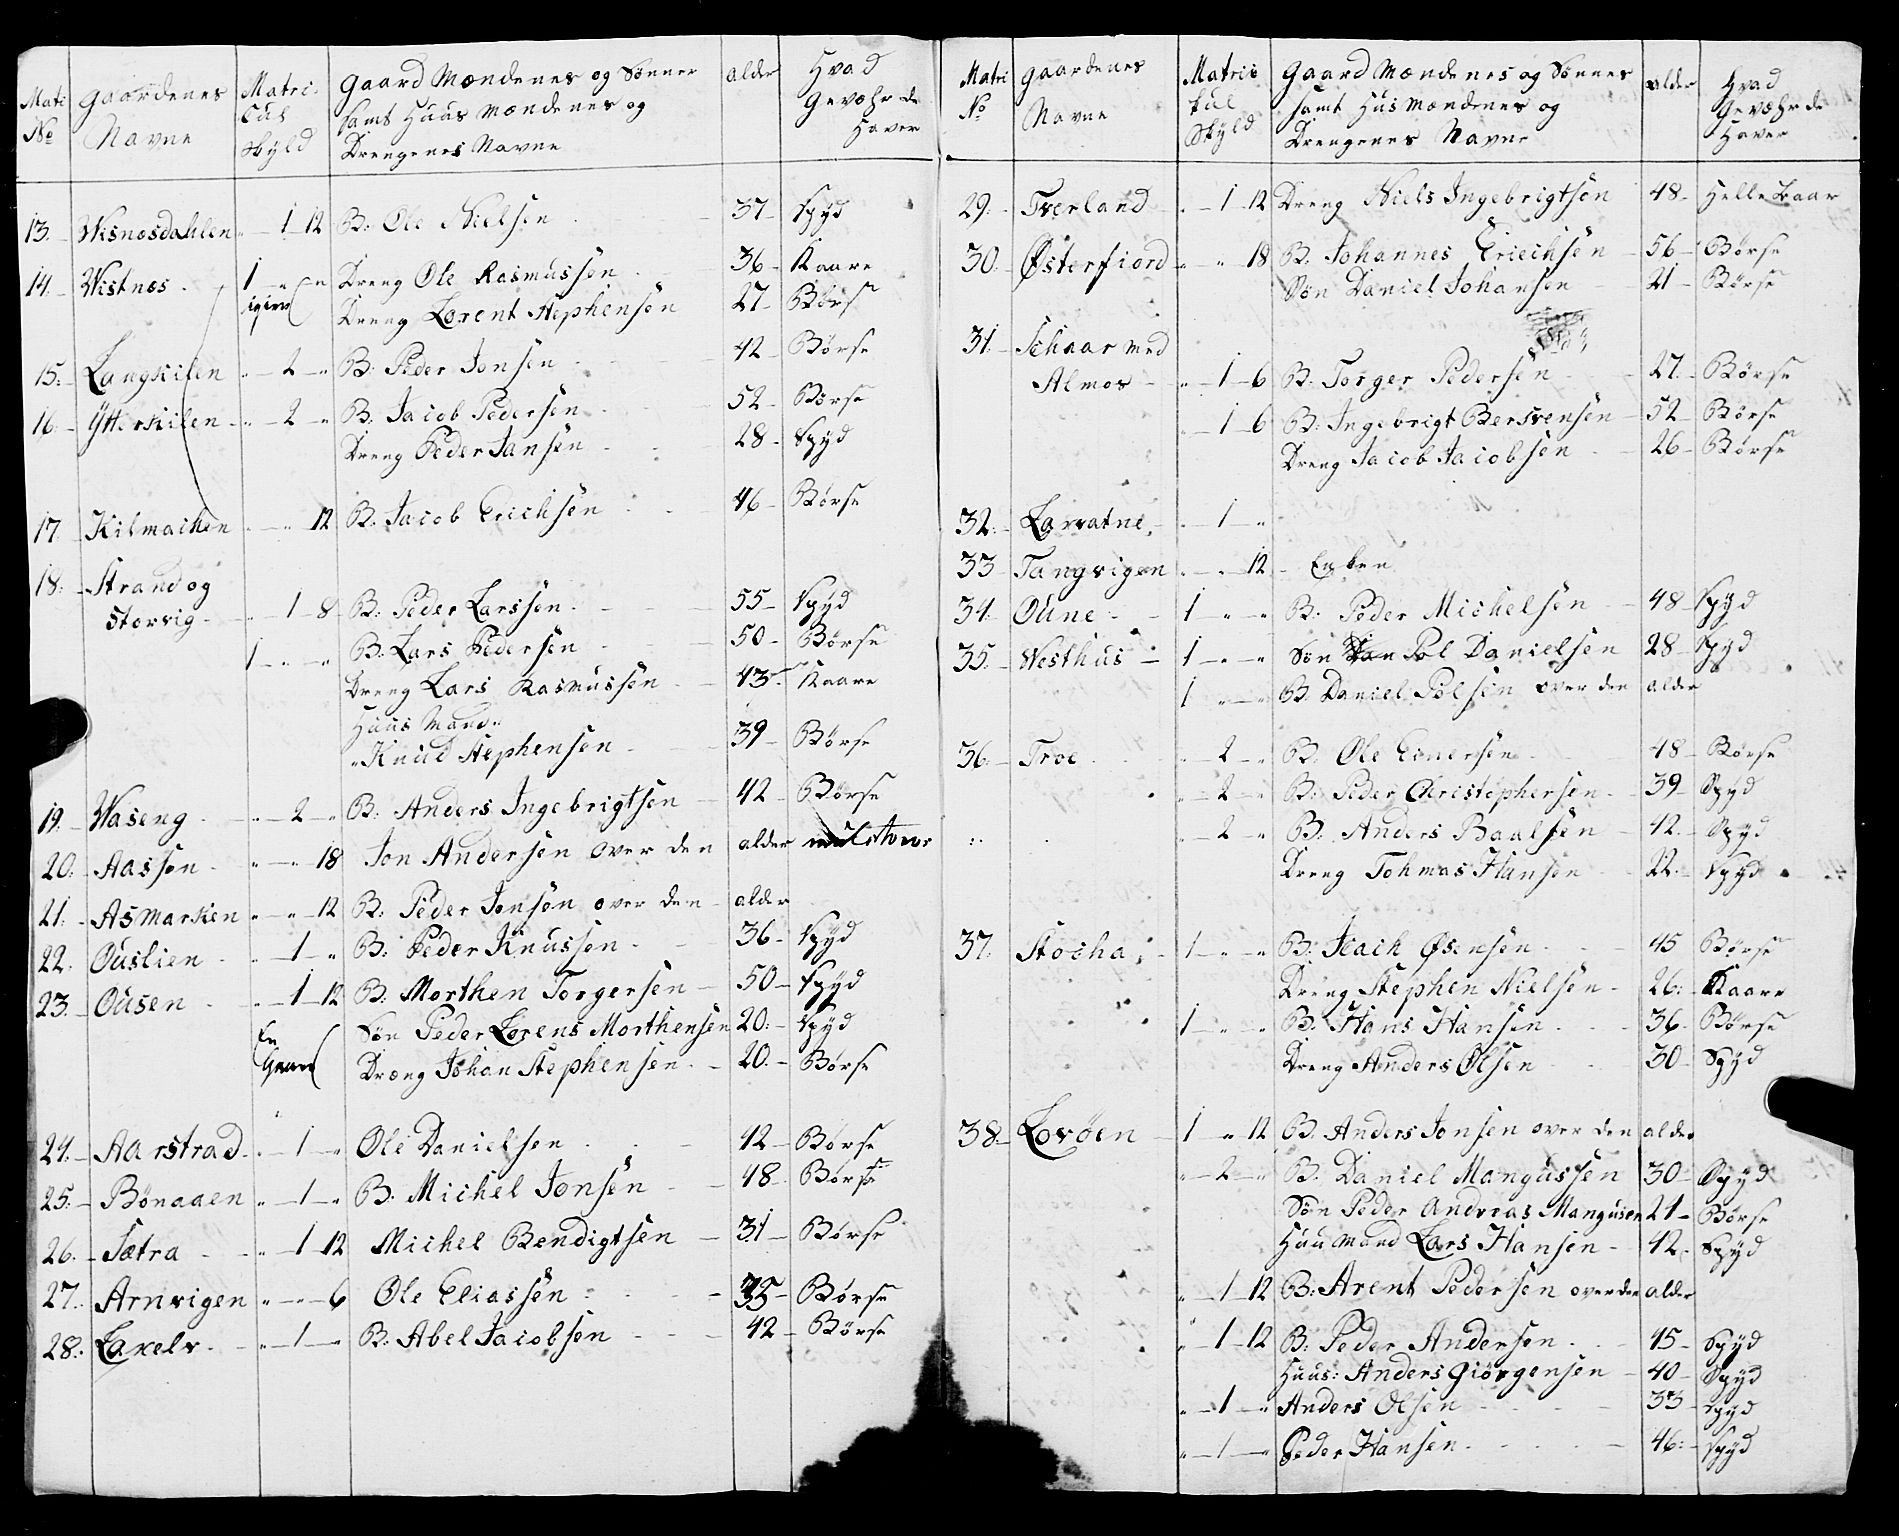 Matr No | Gaardenes Navne | Matricul Skyld | Gaard Mændenes og Sønner samt Huus Mændenes og Drengenes Navne | alder | Hvad Gevæhr de Haver
13. Wisnesdahlen " 1 12 B: Ole Nielsen 37 Spyd
14. Wistnes 1 " " Dreng Ole Rasmussen 36 Kaare
Dreng Lorent Stephensen 27 Børse
15. Langkilen " 2 " B: Peder Jonsen 42 Børse
16. Ytterkilen " 2 " B: Jacob Pedersen 52 Børse
Dreng Peder Jansen 28 Spyd
17. Kilmarken " " 12 B: Jacob Erichsen 46 Børse
18. Strand og
Storvig " 1 8 B: Peder Larssen 55 Spyd
1 " " B: Lars Pedersen 50 Børse
Dreng Lars Rasmussen 43 Kaare
Huus Mand
Knud Stephensen 39 Børse
19. Waseng " 2 " B: Anders Ingebrigtsen 42 Børse
20. Aassen " " 18 Jon Andersen over den alder
21. Asmarken " " 12 B: Peder Jonsen over den alder
22. Ouslien " 1 " B: Peder Knussen 36 Spyd
23. Ousen " 1 12 B: Morthen Torgersen 50 Spyd
Søn Peder Lorens Morthensen 20 Spyd
Dreng Johan Stephensen 20 Børse
24. Aarstrad " 1 " Ole Danielsen 42 Børse
25. Bønaaen " 1 " B: Michel Jonsen 48 Børse
26. Sætra " 1 12 Michel Bendigtsen 31 Børse
27. Arnvigen " " 6 Ole Eliassen 35 Børse
28. Laxelv " 1 " B: Abel Jacobsen 42 Børse
Matri No | Gaardenes Navne | Matricul Skyld | Gaard Mændenes og Sønnes samt Huus Mændenes og Drengenes Navne | alder | Hvad Gevæhr de Haver
29. Tverland " 1 12 Dreng Niels Ingebrigtsen 48 Hellebaar
30. Østerfiord " " 18 B. Johannes Eriechsen 56 Børse
Søn Daniel Johansen 21 Børse
31. Schaar med
Almos " 1 6 B. Torger Pedersen 27 Børse
" 1 6 B. Ingebrigt Bersvensen 52 Børse
Dreng Jacob Jacobsen 26 Børse
32. Larvatne " 1 "
33 Tangvigen " " 12 Enken
34. Oune 1 " " B. Peder Michelsen 48 Spyd
35. Westhus 1 " " Søn Pol Danielsen 28 Spyd
1 " " B. Daniel Polsen over den alder
36. Troe " 2 " B. Ole Einersen 48 Børse
" 2 " B: Peder Christophersen 39 Spyd
" 2 " B: Anders Baalsen 42 Spyd
Dreng Tohmas Hansen 22 Spyd
37. Stocha 1 " " B: Isach Øsensen 45 Børse
Dreng Stephen Nielsen 26 Kaare
1 " " B. Hans Hansen 36 Børse
Dreng Anders Olsen 30 Spyd
38. Lovøen 1 " 12 B. Anders Jonsen over den alder
" 2 " B. Daniel Mangussen 30 Spyd
Søn Peder Andreas Mangusen 21 Børse
Huu Mand Lars Hansen 42 Spyd
" 1 12 B: Arent Pedersen over den alder
" 1 12 B: Peder Andersen 45 Spyd
Huus: Anders Giørgensen 40 Spyd
" 1 " Anders Olsen 33 Spyd
" 1 " Peder Hansen 46 Spyd